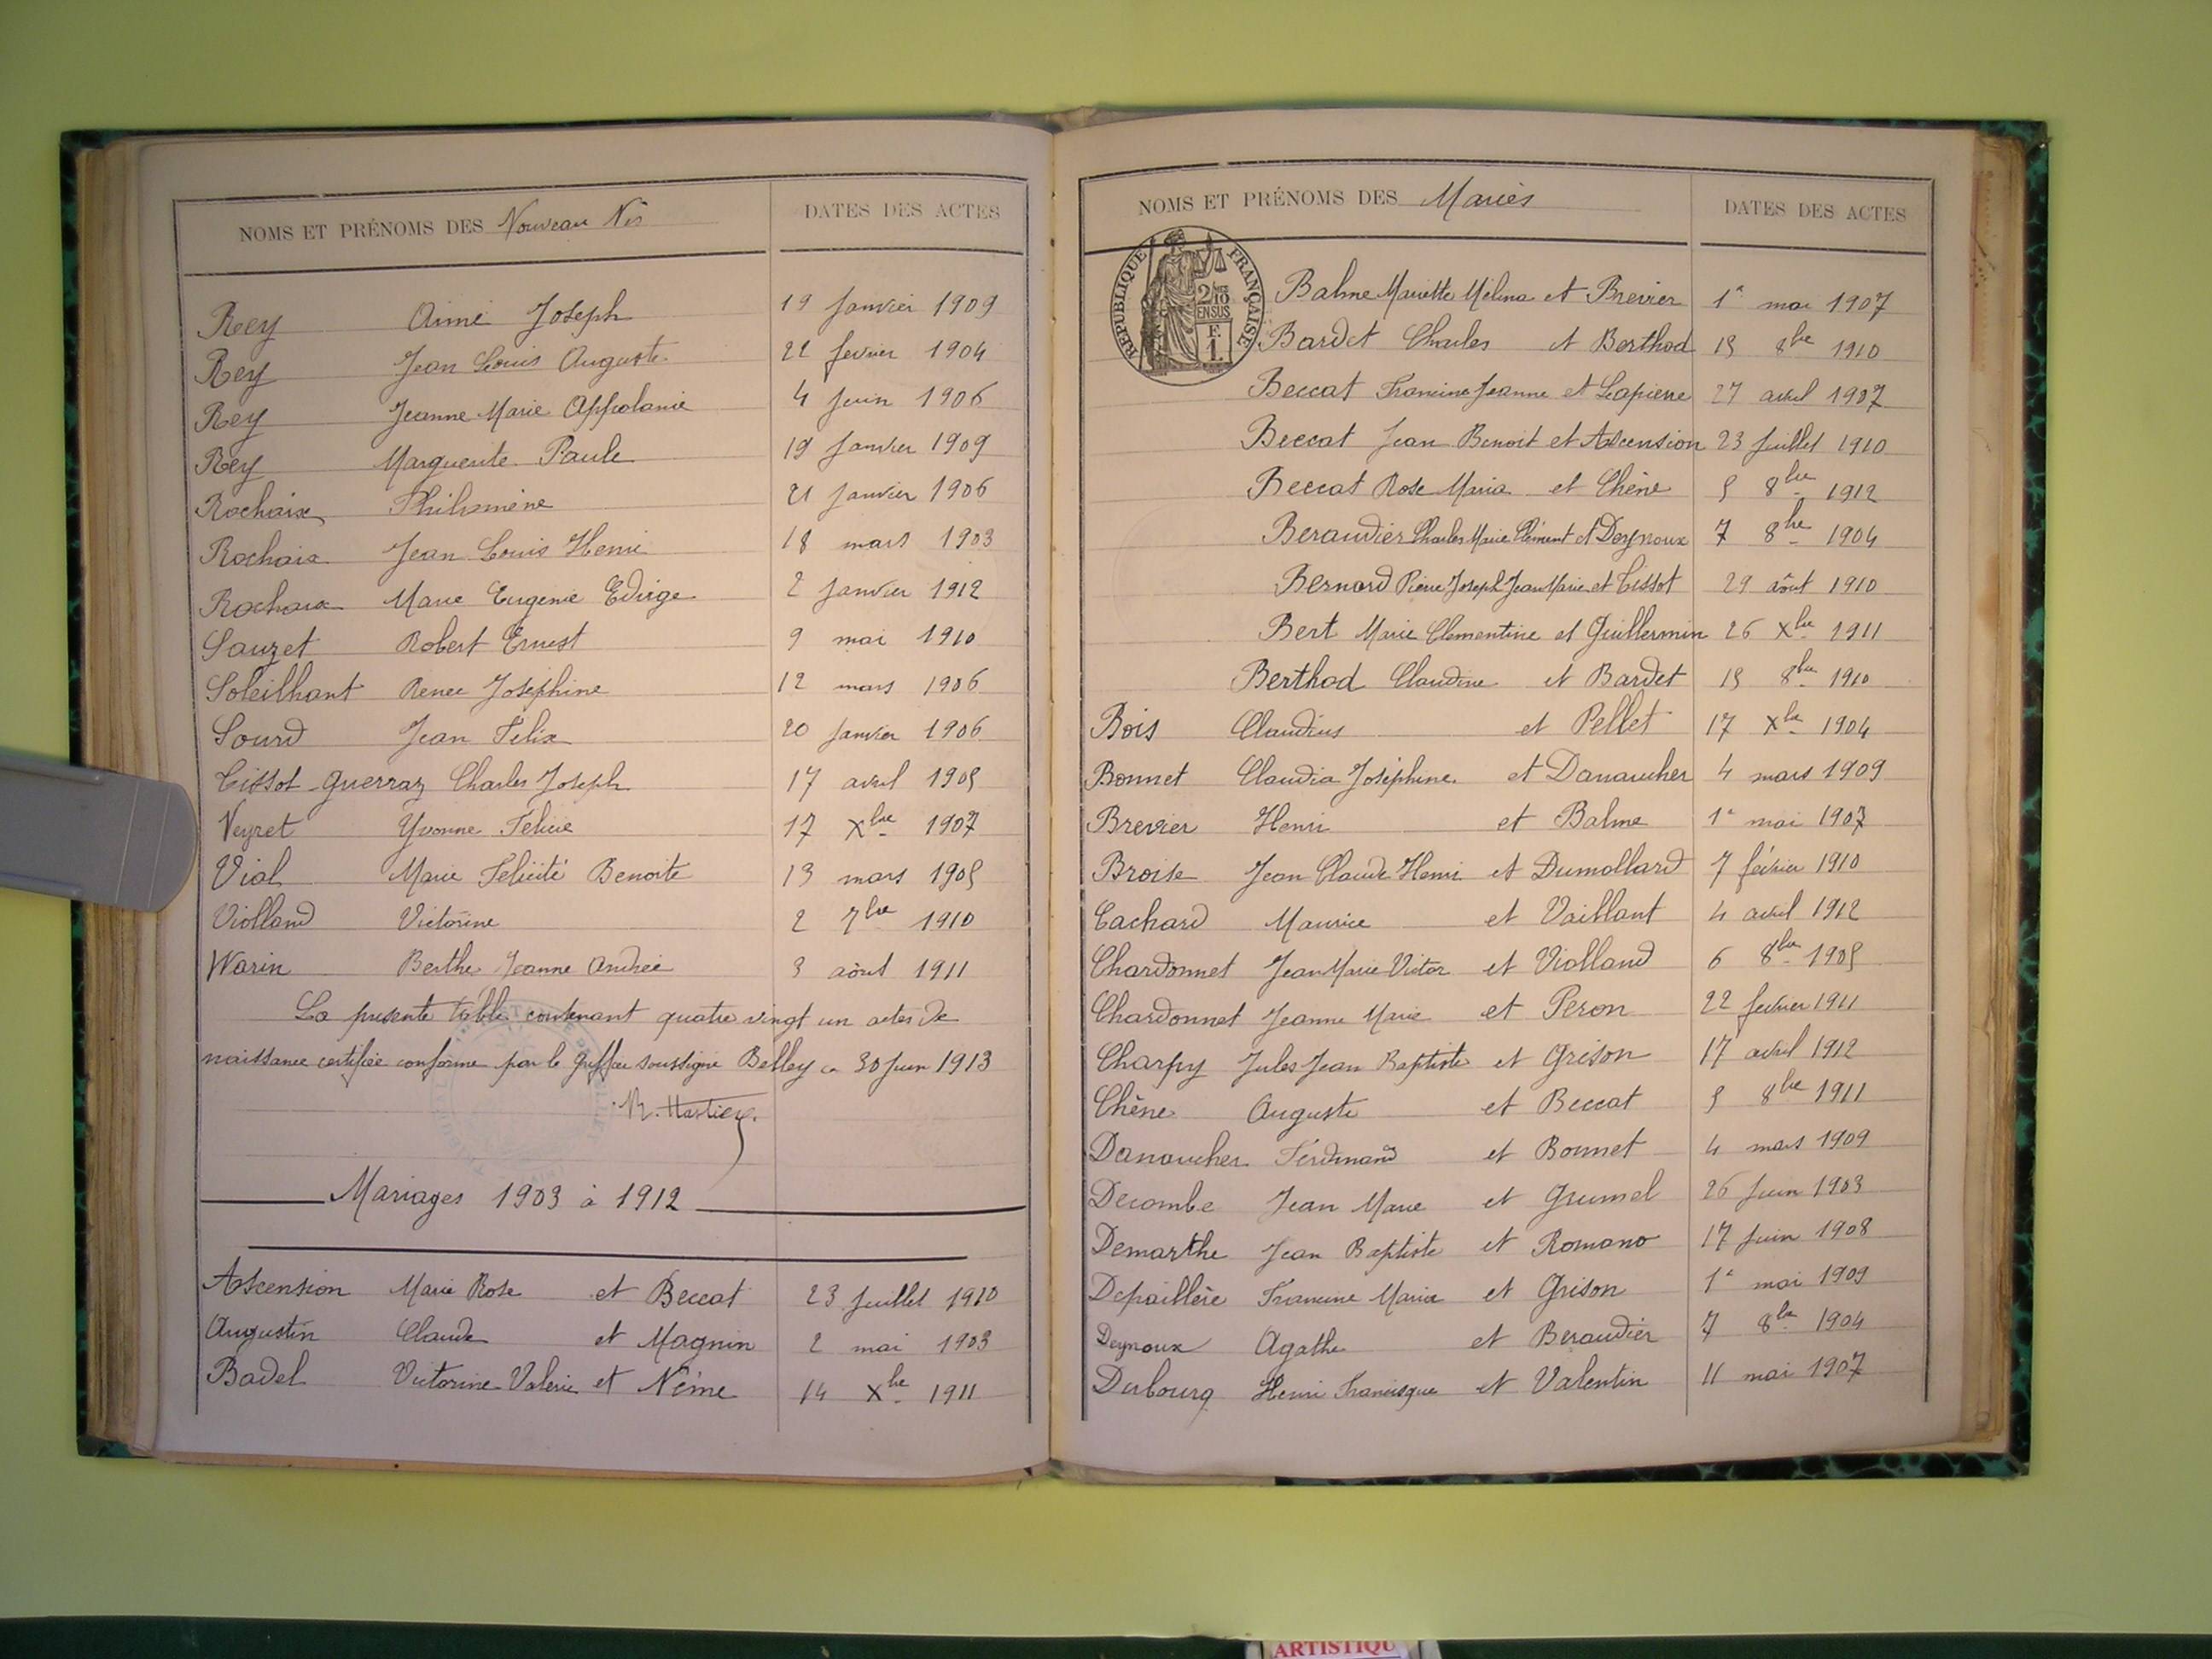 NOMS ET PRÉNOMS DES Nouveau Nés DATES DES ACTES
Rey Aimé Joseph 19 Janvier 1909
Rey Jean Louis Auguste 22 fevrier 1904
Rey Jeanne Marie Appolanie 4 Juin 1906
Rey Marguerite Paule 19 Janvier 1909
Rochaix Philomène 21 Janvier 1906
Rochaix Jean Louis Henri 18 mars 1903
Rochaix Marie Eugenie Edwige 2 Janvier 1912
Sauzet Robert Ernest 9 mai 1910
Soleilhant Renee Joséphine 12 mars 1906
Sourd Jean Félix 20 Janvier 1906
Tissot-Guerraz Charles Joseph 17 avril 1905
Veyret Yvonne Félicie 17 Xbre 1907
Vial Marie Félicité Benoite 13 mars 1905
Violland Victorine 2 7bre 1910
Warin Berthe Jeanne Andrée 3 août 1911
La presente table contenant quatre vingt un actes de
naissance certifiée conforme par le greffier soussigné Belley le 30 Juin 1913
Mariages 1903 à 1912
Ascension Marie Rose et Beccat 23 Juillet 1910
Augustin Claude et Magnin 2 mai 1903
Badel Victorine Valerie et Nême 14 Xbre 1911
NOMS ET PRÉNOMS DES Mariés DATES DES ACTES
RÉPUBLIQUE FRANÇAISE
2/10
EN SUS
F.
1.
Balme Mariette Mélina et Brevier 1er mai 1907
Bardet Charles et Berthod 15 8bre 1910
Beccat Francine Jeanne et Lapierre 27 avril 1907
Beccat Jean Benoit et Ascension 23 Juillet 1910
Beccat Rose Maria et Chêne 5 8bre 1912
Beraudier Charles Marie Clément et Deynoux 7 8bre 1904
Bernard Pierre Joseph Jean Marie et Tissot 29 août 1910
Bert Marie Clementine et Guillermin 26 Xbre 1911
Berthod Claudine et Bardet 15 8bre 1910
Bois Claudius et Pellet 17 Xbre 1904
Bonnet Claudia Joséphine et Danancher 4 mars 1909
Brevier Henri et Balme 1er mai 1907
Broise Jean Claude Henri et Dumollard 7 février 1910
Cachard Maurice et Vaillant 4 avril 1912
Chardonnet Jean Marie Victor et Violland 6 8bre 1905
Chardonnet Jeanne Marie et Peron 22 fevrier 1911
Charpy Jules Jean Baptiste et Grison 17 avril 1912
Chêne Auguste et Beccat 5 8bre 1911
Danancher Ferdinand et Bonnet 4 mars 1909
Decombe Jean Marie et Grumel 26 Juin 1903
Demarthe Jean Baptiste et Romano 17 Juin 1908
Depaillère Francine Maria et Grison 1er mai 1909
Deynoux Agathe et Beraudier 7 8bre 1904
Dubourg Henri Francisque et Valentin 11 mai 1907
ARTISTIQU